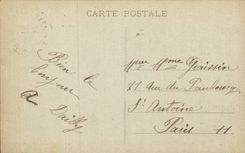 CARTE POSTALE
Bien le
bonjour
à Dailly
Mme
21 rue du Faubourg
St Antoine
Paris 11